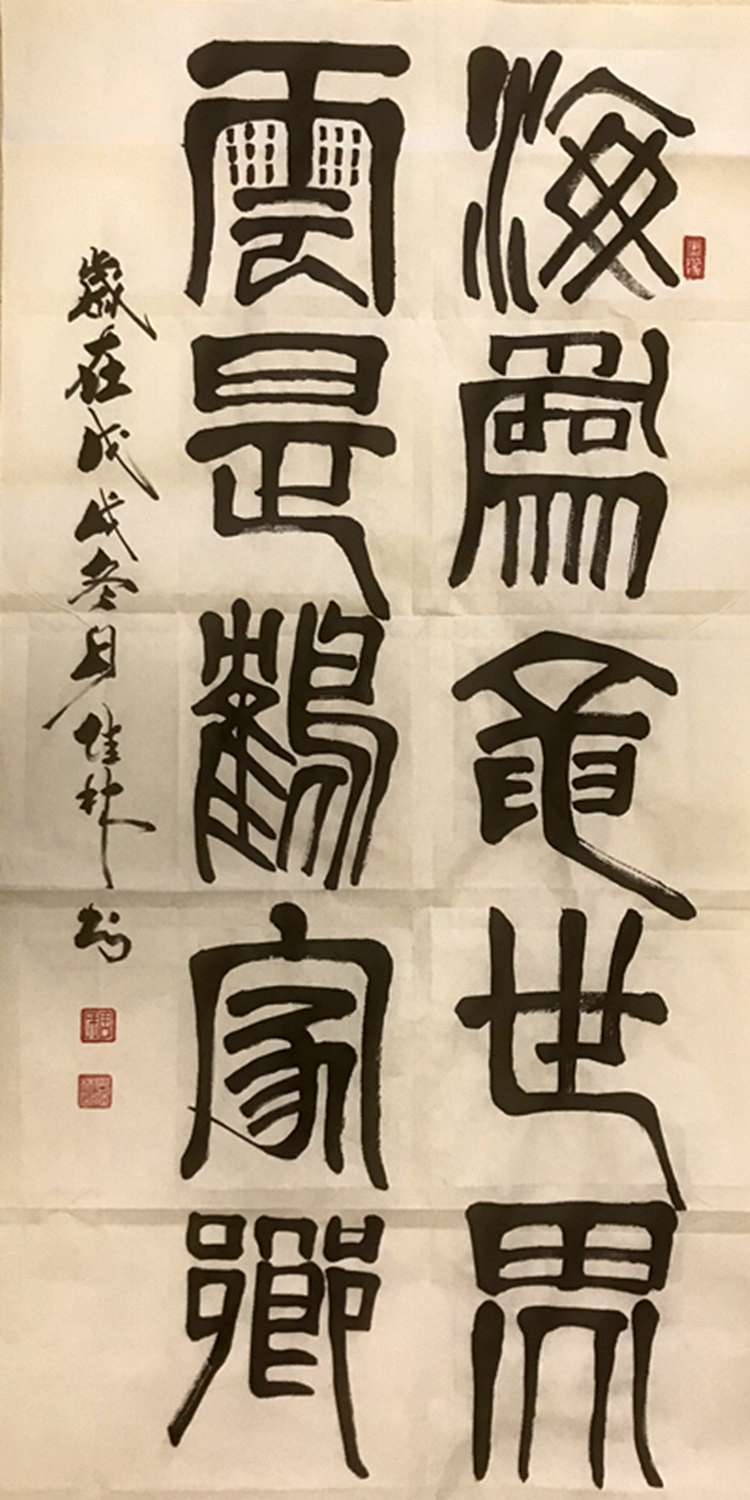 海為龍世界
雲是鶴家鄉
歲在戊戌冬月佳林書